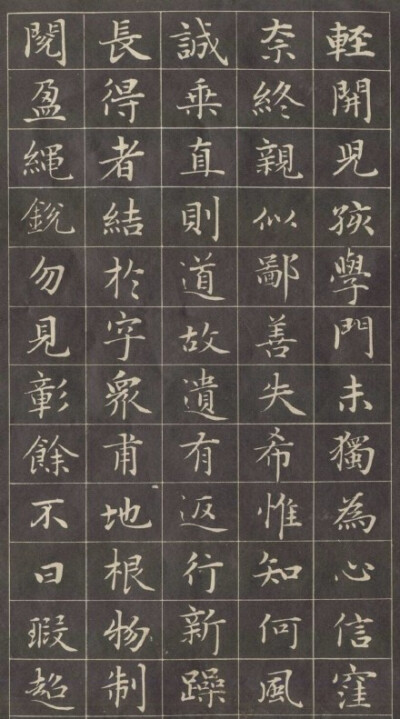 輕開兒孩學門未獨為心信窪
奈終親似鄙善失希惟知何風
誠乘直則道故遺有返行新躁
長得者結於字衆甫地根物制
閱盈繩銳勿見彰餘不曰瑕超